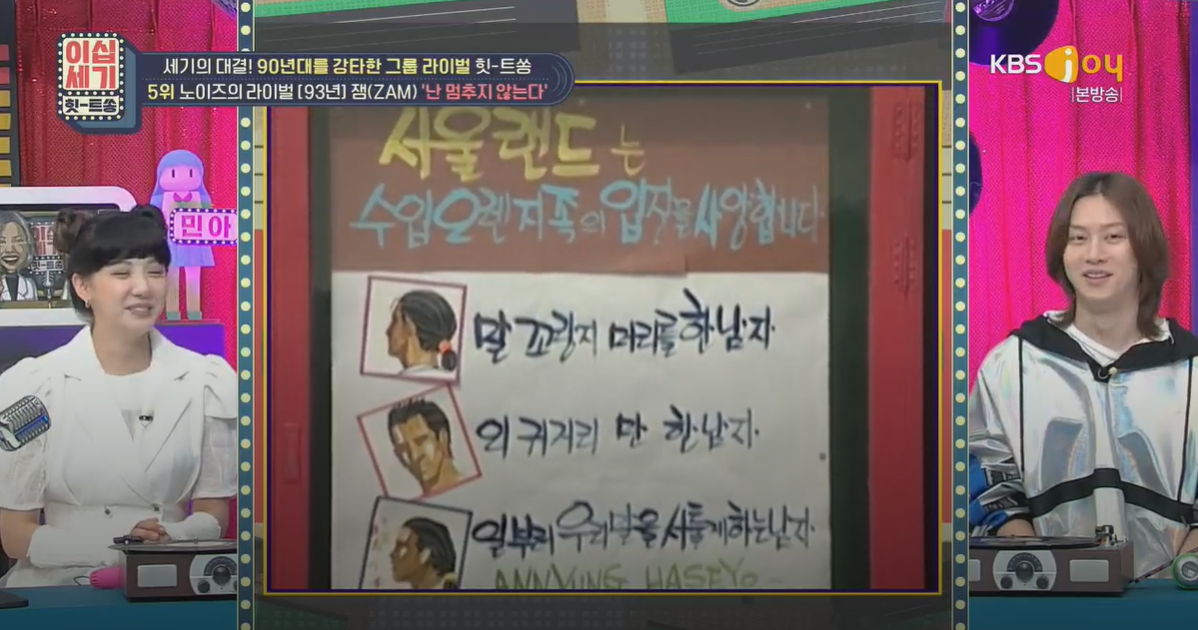 이십
세기
힛-트쏭
세기의 대결! 90년대를 강타한 그룹 라이벌 힛-트쏭
5위 노이즈의 라이벌 [93년] 잼(ZAM) '난 멈추지 않는다'
KBS joy
|본방송|
민아
서울랜드는
수입오렌지족의 입장을 사양합니다
말꼬랑지 머리를 한 남자.
외귀지리 만 한 남자.
일부러 우리말을 서툴게 하는 남자.
ANNYING HASEYO~